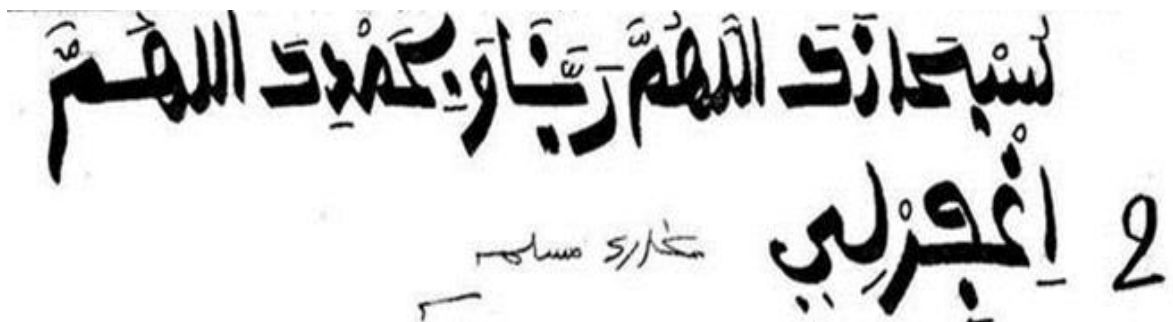 سُبْحَانَكَ اللَّهُمَّ رَبَّنَا وَبِحَمْدِكَ اللَّهُمَّ
2 اِغْفِرْلِي بخاری مسلم